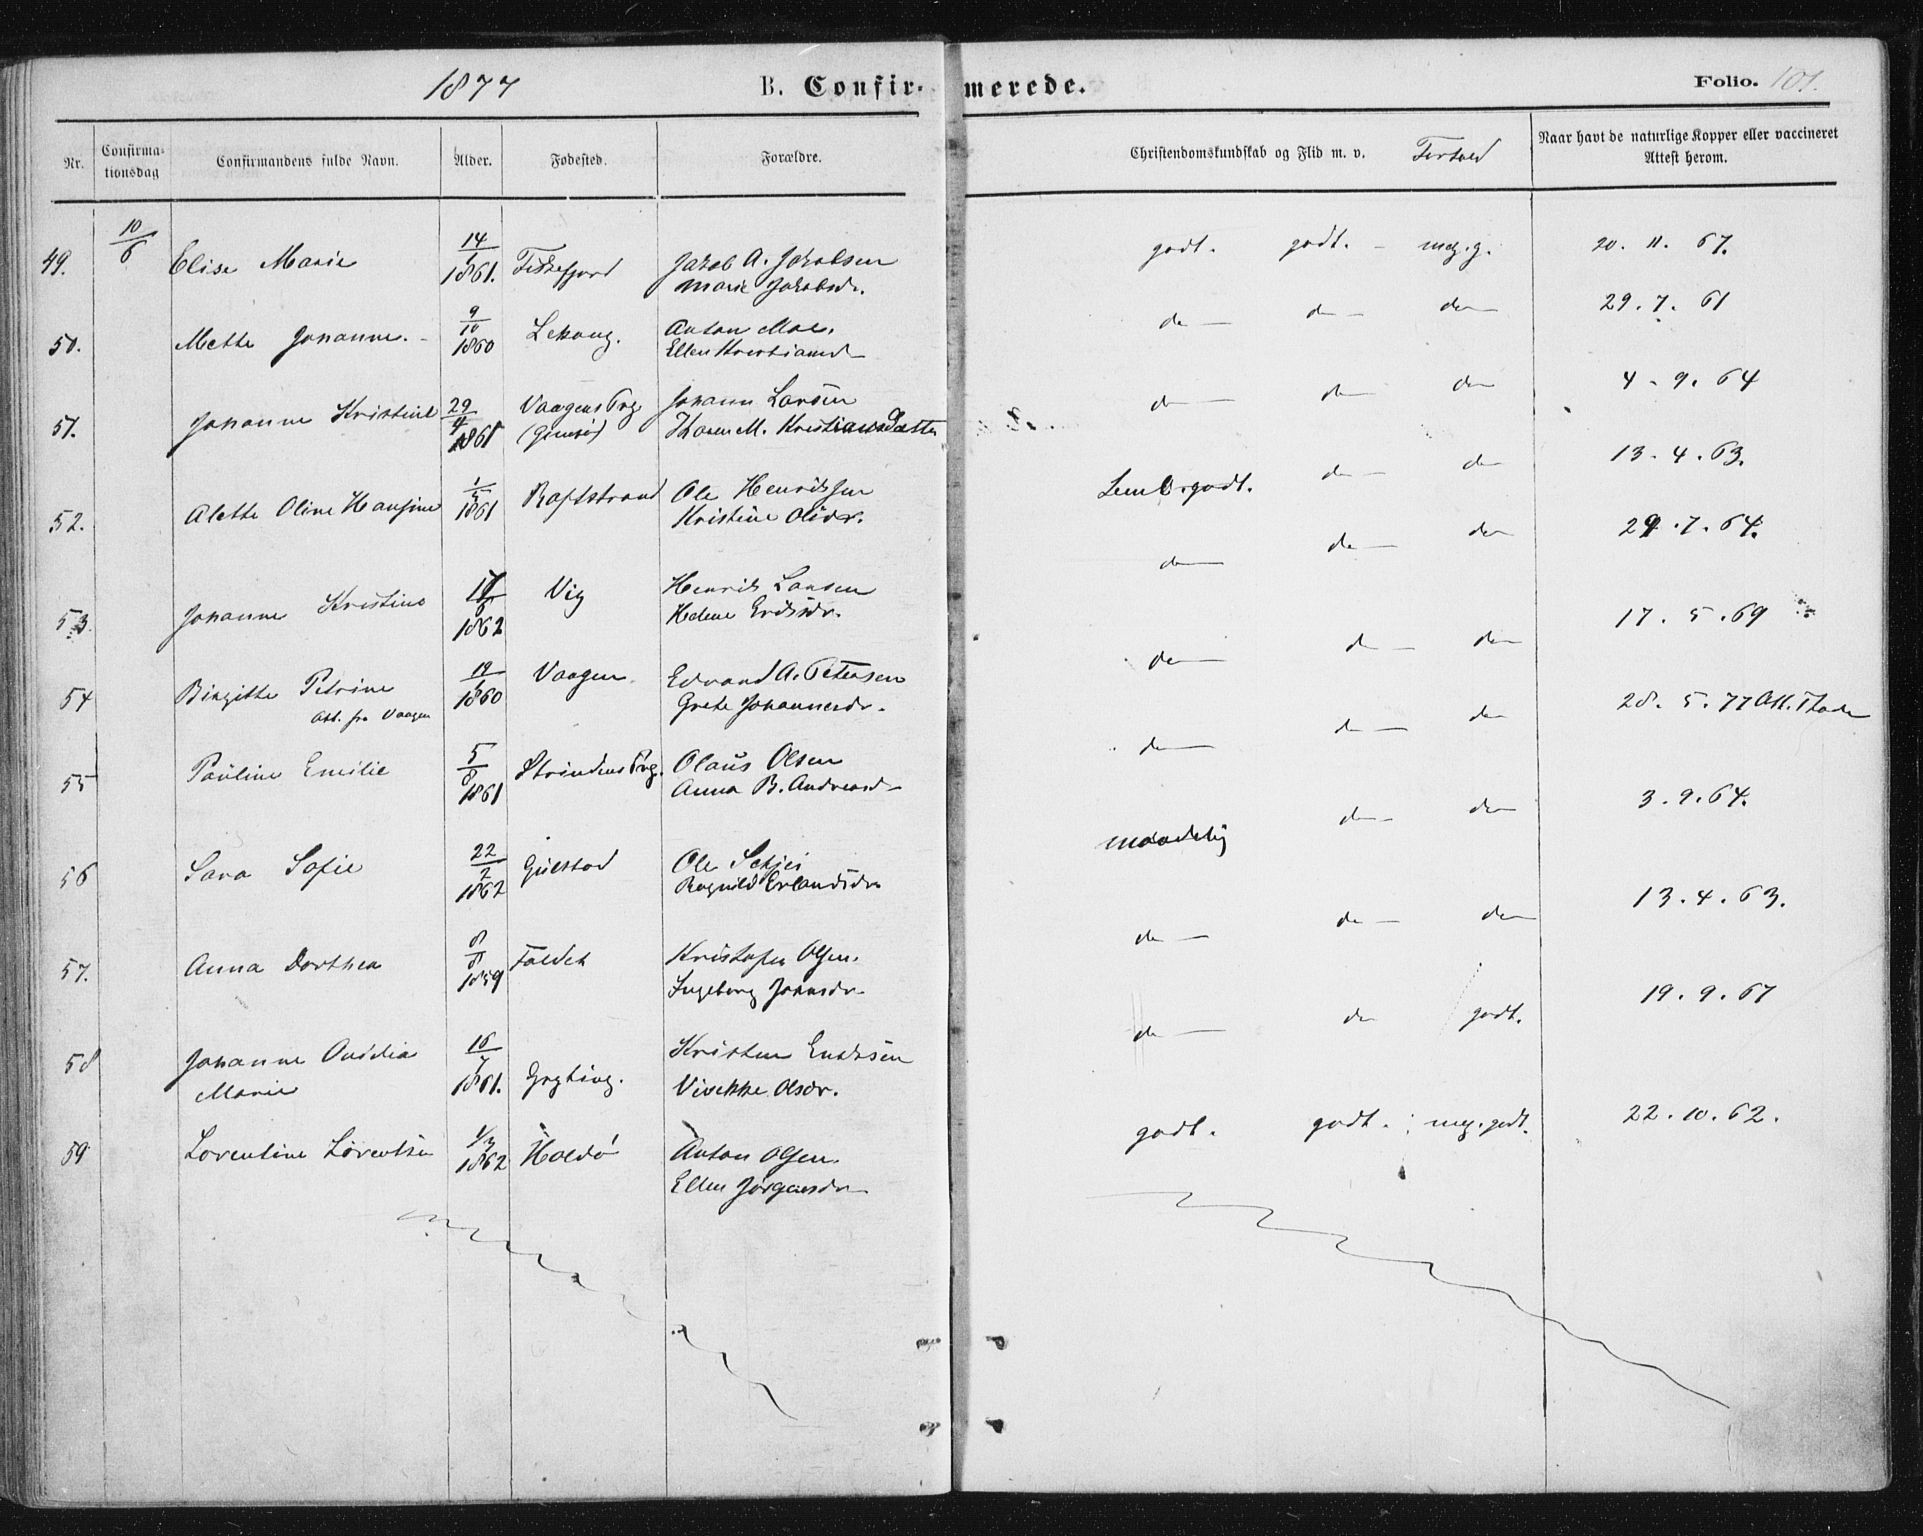 1877 B. Confirmerede. Folio. 101.
Nr. Confirmationsdag Confirmandens fulde Navn. Alder. Fødested. Forældre. Christendomskundskab og Flid m. v. Forhold Naar havt de naturlige Kopper eller vaccineret Attest herom.
49. 10/6 Elise Marie 14/ 1861. Fiskefjord Jakob A. Jakobsen godt. godt. – meg. g. 20. 11. 67.
Marie Jakobsdr.
50. Mette Johanne. 9/10 1860 Lekang. Anton Moe. do do do 29. 7. 61
Ellen Kristiansd
51. Johanne Kristine 29/4 1861 Vaagens Prg. Johann Larsen do do do 4. 9. 64
(Gimsø) Thoren M. Kristiansdatter
52. Alette Oline Hansine 1/5 1861 Raftstrand Ole Henriksen Temb. godt. do do 13. 4. 63.
Kristine Olsdr.
53. Johanne Kristine 1862 Vig Henrik Larsen do do do 29. 7. 64.
Helene Eriksdr.
54 Birgitte Petrine 1860 Vaagen. Edvard A. Petersen do do do 17. 5. 69
Att. fra Vaagen Grete Johannesdr.
55 Pauline Emilie 5/8 1861 Strindens Prg. Olaus Olsen do do do 28. 5. 77 Att.
Anna B. Andreasd
56 Sara Sofie 22/2 1862 Gulstad Ole maadelig do do 3. 9. 64.
Ragnild Erlandsdr
57. Anna Dorthea 8/8 1859 Foldet Kristofer Olsen. do do do 13. 4. 63.
Ingeborg Johnsdr
58 Johanne Ovidia 16/7 1861. Grytting. Kristen do do godt. 19. 9. 67
Marie Vivekke Olsdr.
59 Lorentine Lorentse 1/3 1862 Holdø Anton Olsen. godt. godt. meg. godt. 22. 10. 62.
Ellen Jørgensdr